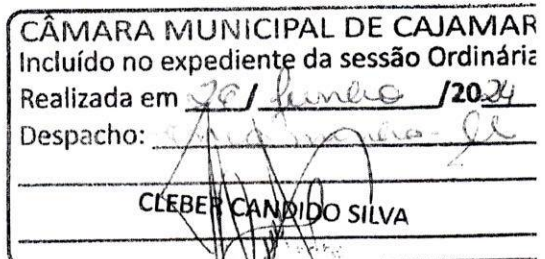 CÂMARA MUNICIPAL DE CAJAMAR
Incluído no expediente da sessão Ordinária
Realizada em / Junho /2024
Despacho:
CLEBER CANDIDO SILVA